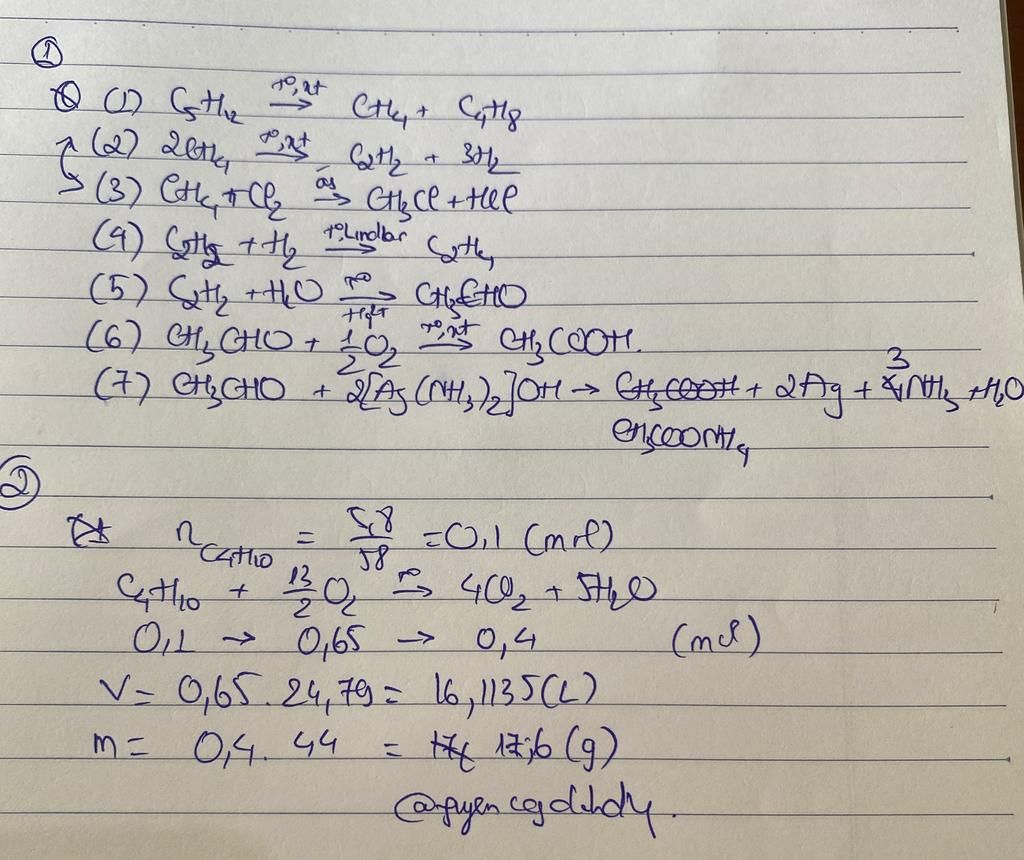 ①
(1) C5H12 →(t°, xt) CH4 + C4H8
(2) 2CH4 →(t°, xt) C2H2 + 3H2
(3) CH4 + Cl2 →(ás) CH3Cl + HCl
(4) C2H2 + H2 →(t°, Lindlar) C2H4
(5) C2H2 + H2O →(t°, Hg2+) CH3CHO
(6) CH3CHO + 1/2 O2 →(t°, xt) CH3COOH.
(7) CH3CHO + 2[Ag(NH3)2]OH → CH3COOH + 2Ag + 3NH3 + H2O
CH3COONH4
②
nC4H10 = 5,8/58 = 0,1 (mol)
C4H10 + 13/2 O2 →(t°) 4CO2 + 5H2O
0,1 → 0,65 → 0,4 (mol)
V = 0,65. 24,79 = 16,1135(L)
m = 0,4. 44 = 17,6 (g)